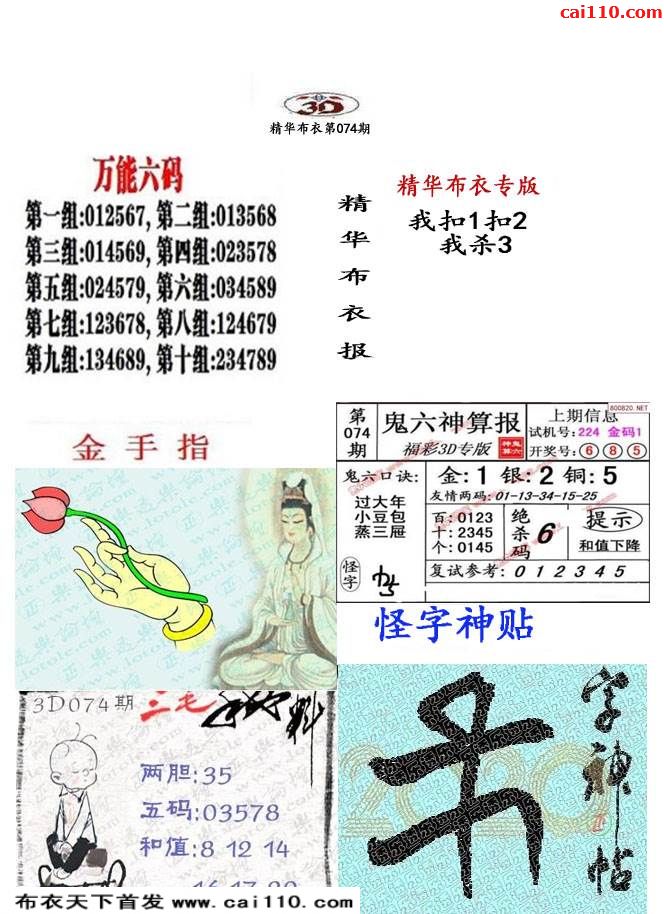 cai110.com
3D
精华布衣第074期
万能六码
第一组:012567, 第二组:013568
第三组:014569, 第四组:023578
第五组:024579, 第六组:034589
第七组:123678, 第八组:124679
第九组:134689, 第十组:234789
精华布衣报
精华布衣专版
我扣1扣2
我杀3
金手指
第074期
鬼六神算报
福彩3D专版
神鬼算六
上期信息
800820.NET
试机号:224 金码1
开奖号:685
鬼六口诀:
过大年
小豆包
蒸三屉
怪字
金:1 银:2 铜:5
友情两码:01-13-34-15-25
百:0123
十:2345
个:0145
绝杀码 6
提示
和值下降
复试参考:012345
怪字神贴
3D074期
三毛
两胆:35
五码:03578
和值:8 12 14
字神帖
2020
布衣天下首发 www.cai110.com